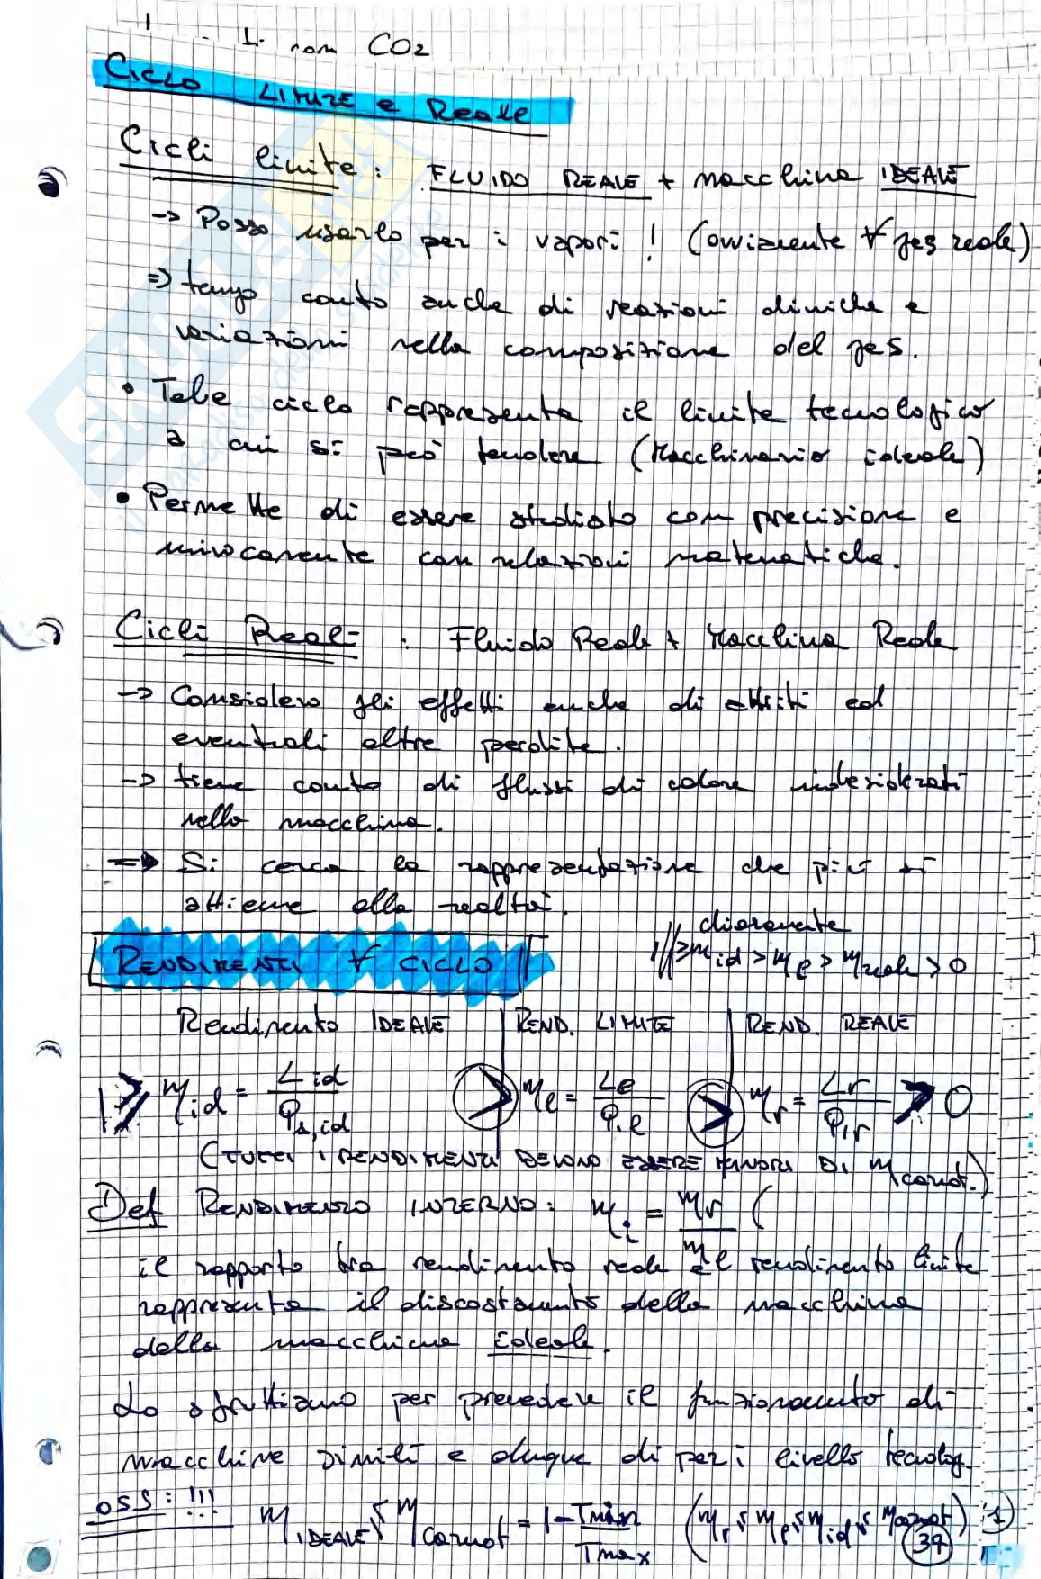 1. non CO2
CICLO LIMITE e Reale
Cicli limite: FLUIDO REALE + macchina IDEALE
-> Posso usarlo per i vapori! (ovviamente ∀ gas reale)
=> tengo conto anche di reazioni chimiche e
variazioni nella composizione del gas.
• Tale ciclo rappresenta il limite tecnologico
a cui si può tendere (Macchinario ideale)
• Permette di essere studiato con precisione e
univocamente con relazioni matematiche.
Cicli Reali : Fluido Reale + Macchina Reale
-> Considero gli effetti anche di attriti ed
eventuali altre perdite.
-> tiene conto di flussi di calore indesiderati
nella macchina.
=> Si cerca la rappresentazione che più si
attiene alla realtà.
chiaramente
RENDIMENTI ∀ CICLO 1 > ηid > ηl > ηreale > 0
Rendimento IDEALE | REND. LIMITE | REND. REALE
1 > ηid = Lid / Q1,id > ηl = Ll / Q1,l > ηr = Lr / Q1,r > 0
(TUTTI I RENDIMENTI DEVONO ESSERE MINORI DI ηcarnot.)
Def RENDIMENTO INTERNO: ηi = ηr / ηl (
il rapporto tra rendimento reale e il rendimento limite
rappresenta il discostamento della macchina
dalla macchina ideale.
Lo sfruttiamo per prevedere il funzionamento di
macchine simili e dunque di pari livello tecnolog.
OSS: !!! ηIDEALE ≤ ηCarnot = 1 - Tmin / Tmax (ηr ≤ ηl ≤ ηid ≤ ηcarnot) < 1
39